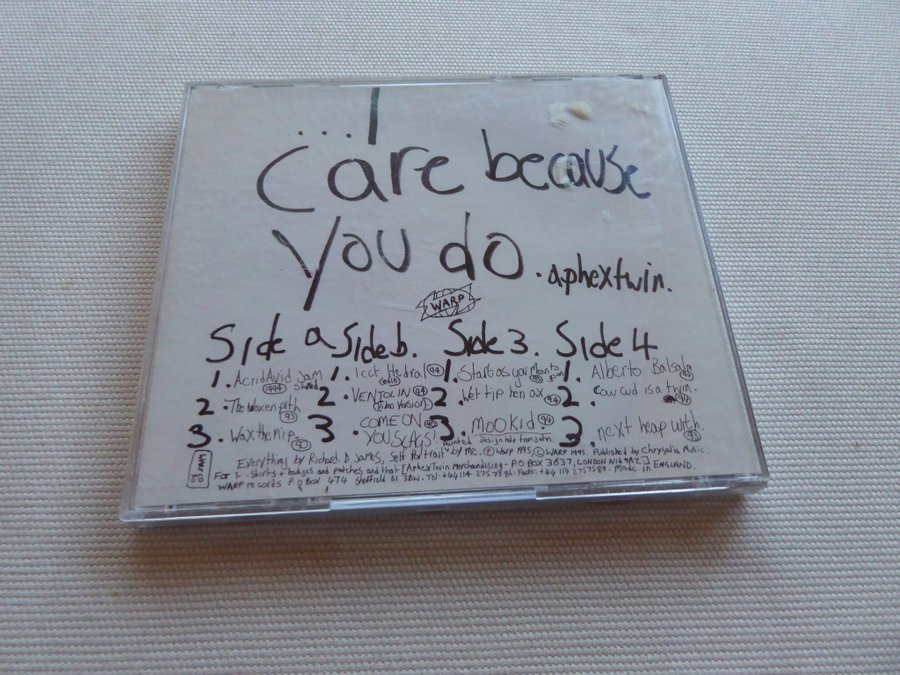 ....I
Care because
you do. aphextwin.
WARP
Side a
1. Acrid Avid Jam
Shred 1994
2. The waxen pith 93
3. Wax the Nip. 90
Side b.
1. Icct Hedral 94
(edit)
2. VENTOLIN 94
3. COME ON
YOU SLAGS!
Side 3.
1. Start as you Mean to
go on 93
2. Wet tip hen ax 94
3. Mookid. 94
Side 4
1. Alberto Balsalm
2. Cow cud is a twin. 94
3. next heap with. 93
Everything by Richard. D. James, Self Portrait by me. ℗ Warp 1995. © WARP 1995. Published by Chrysalis Music.
For t-shirts + badges and patches and that [AphexTwin Merchandising - P O BOX 3637, LONDON NW6 ENGLAND.
WARP records P O Box 474 Sheffield S1 3BW. Tel +44 114 275 7586. Made in